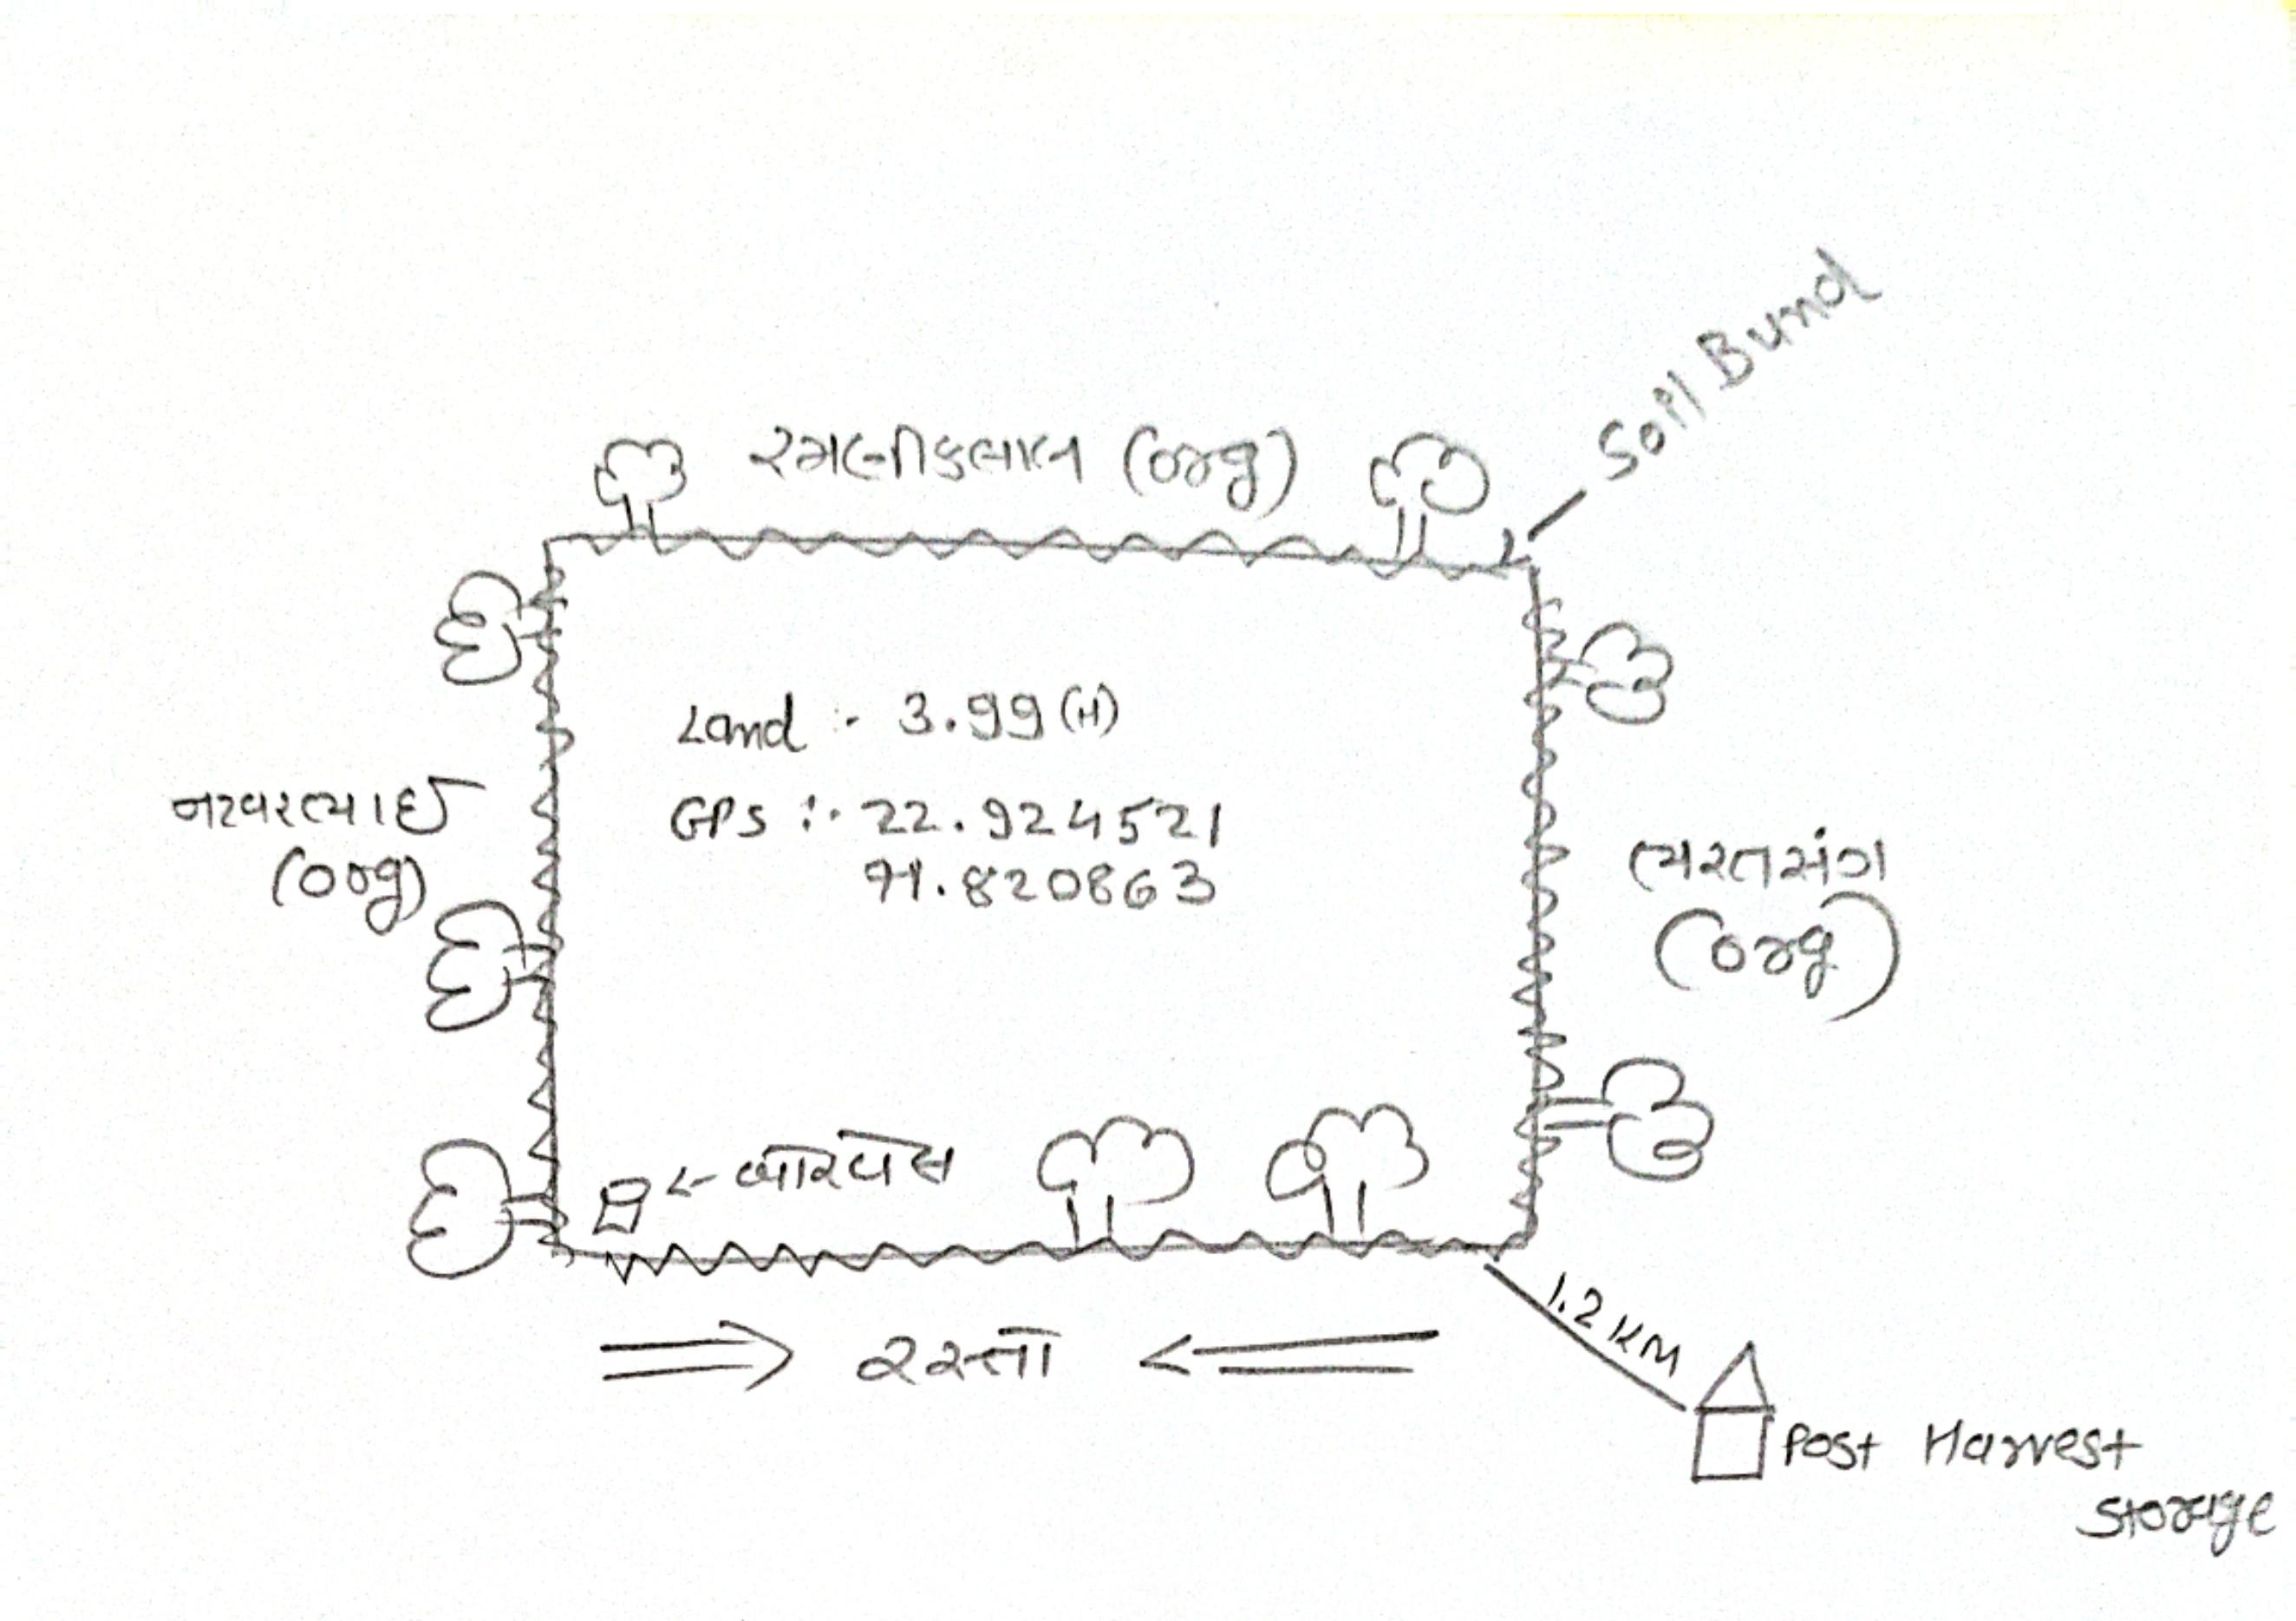 Soil Bund
રમણીકલાલ (org)
Land :- 3.99 (H)
GPS :- 22.924521
71.820863
નટવરભાઈ
(org)
ભરતસંગ
(org)
બોરવેલ
રસ્તો
1.2 KM
Post Harvest
Storage